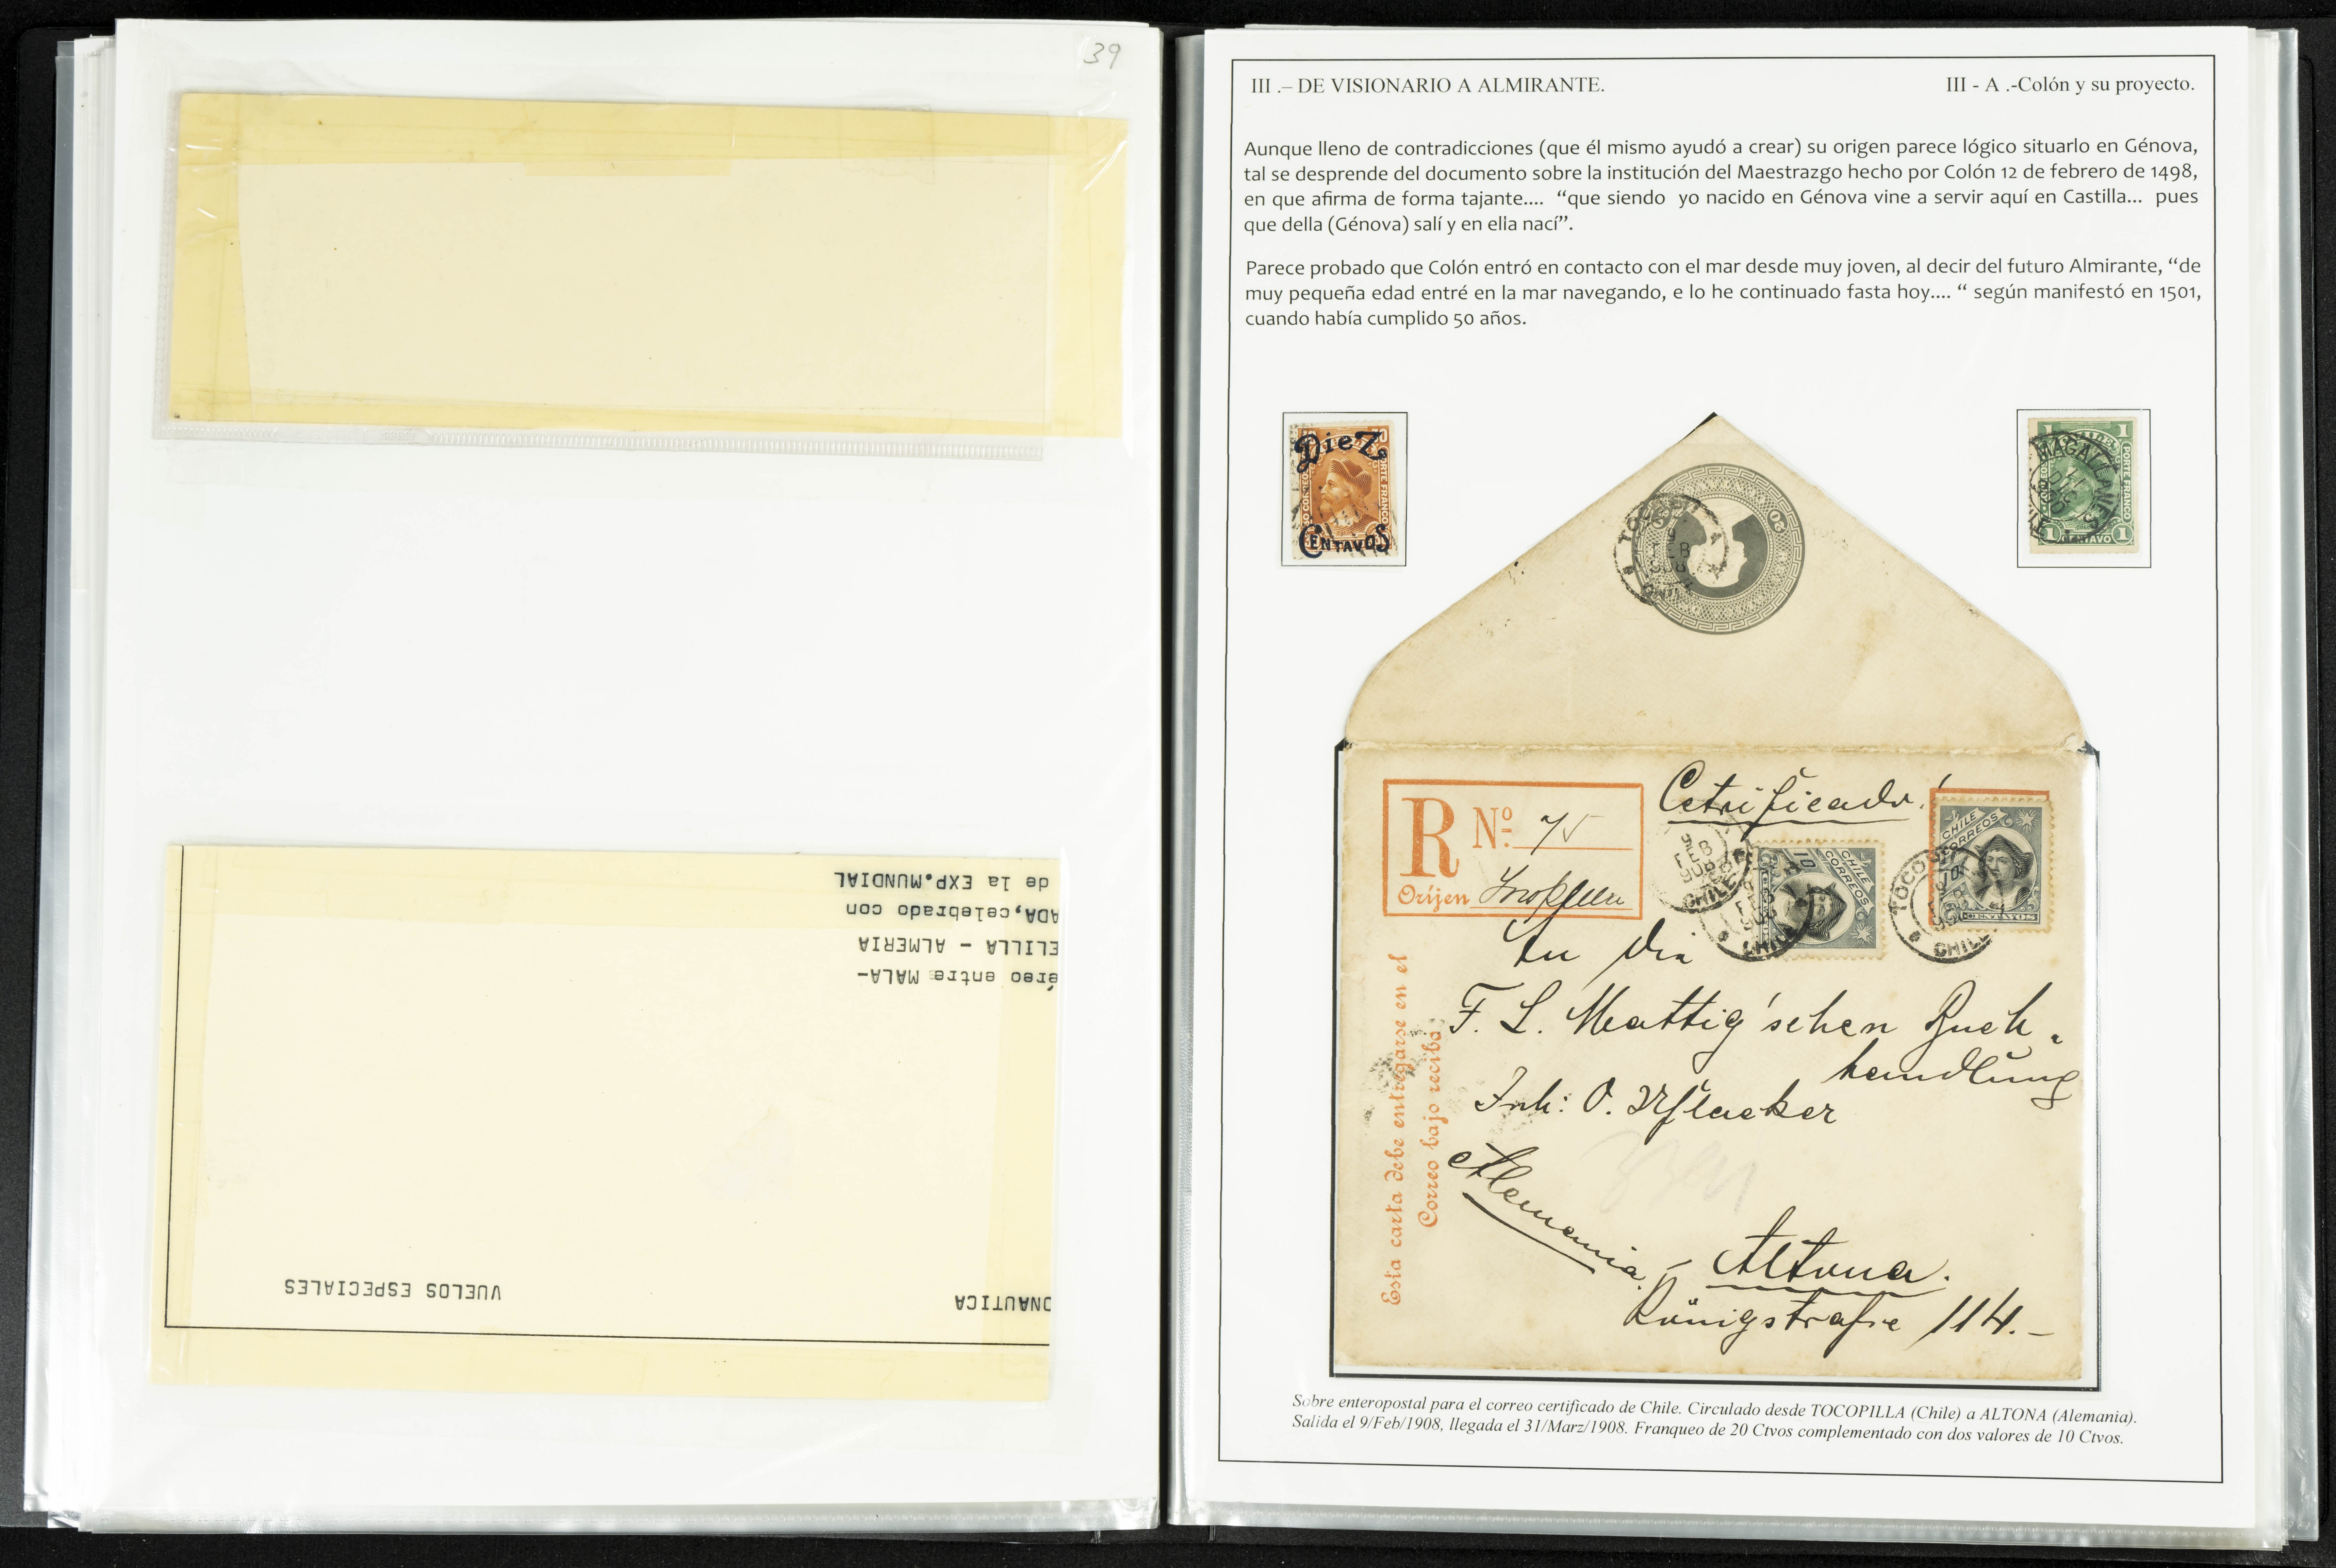 39
de la EXP.MUNDIAL
ADA,celebrado con
ELILLA - ALMERIA
éreo entre MALA-
VUELOS ESPECIALES
ONAUTICA
III .– DE VISIONARIO A ALMIRANTE.
III - A .-Colón y su proyecto.
Aunque lleno de contradicciones (que él mismo ayudó a crear) su origen parece lógico situarlo en Génova,
tal se desprende del documento sobre la institución del Maestrazgo hecho por Colón 12 de febrero de 1498,
en que afirma de forma tajante.... “que siendo yo nacido en Génova vine a servir aquí en Castilla... pues
que della (Génova) salí y en ella nací”.
Parece probado que Colón entró en contacto con el mar desde muy joven, al decir del futuro Almirante, “de
muy pequeña edad entré en la mar navegando, e lo he continuado fasta hoy.... “ según manifestó en 1501,
cuando había cumplido 50 años.
DieZ
CENTAVOS
PORTE FRANCO
1 1
MAGALLANES
PORTE FRANCO
1 CENTAVO 1
20
9
FEB
CHILE
R Nº 75
Oríjen
Cetrificado!
CHILE
CORREOS
10
CHILE
CORREOS
10
CENTAVOS
9
FEB
908
CHILE
CHILE
TOCO
CHILE
An die
F. L. Mattig'schen Buch-
handlung
Inh: O. Uflacker
Alemania.
Altona.
Königstraße 114.–
Esta carta debe entregarse en el
Correo bajo recibo
Sobre enteropostal para el correo certificado de Chile. Circulado desde TOCOPILLA (Chile) a ALTONA (Alemania).
Salida el 9/Feb/1908, llegada el 31/Marz/1908. Franqueo de 20 Ctvos complementado con dos valores de 10 Ctvos.